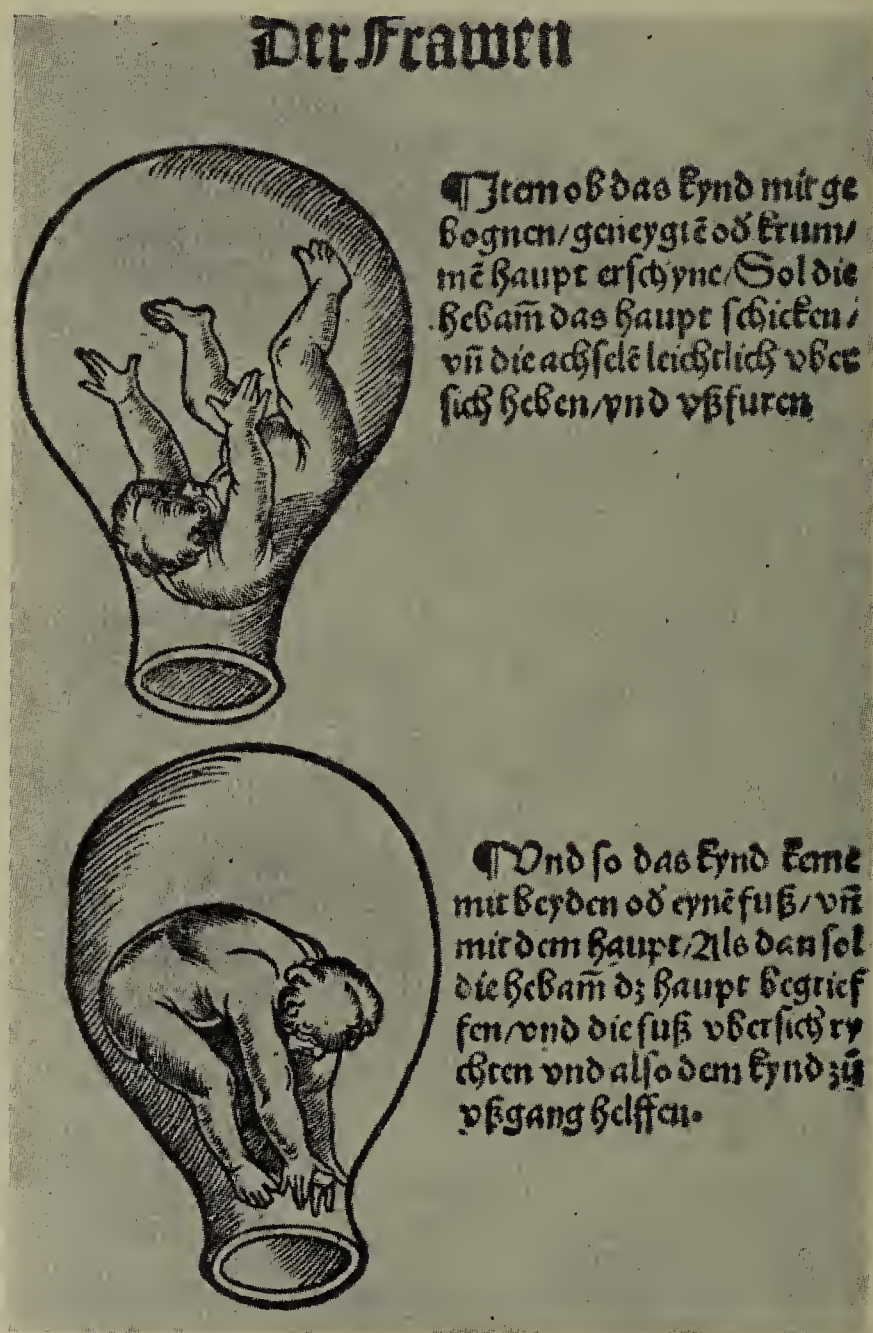 Der Frawen
¶Item ob das kynd mit ge
bognen/geneygtē od̄ krum/
mē haupt erschyne/Sol die
hebam̄ das haupt schicken/
vn̄ die achselē leichtlich vber
sich heben/vnd vßfuren
¶Vnd so das kynd keme
mit beyden od̄ eynē fuß/vn̄
mit dem haupt/Als dan sol
die hebam̄ dz haupt begrief
fen/vnd die fuß vbersich ry
chten vnd also dem kynd zů
vßgang helffen.